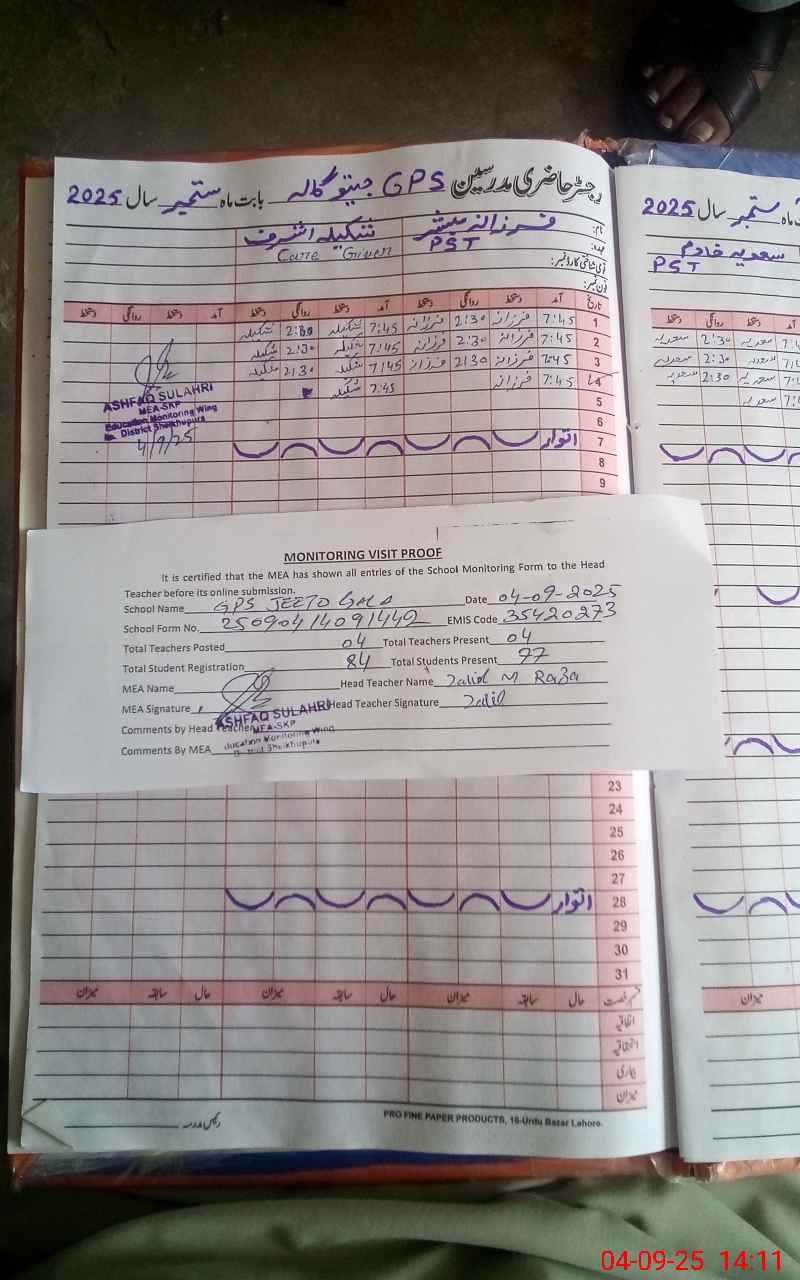 رجسٹر حاضری مدرسین GPS جیتو گالہ بابت ماہ ستمبر سال 2025
نام: فرزانہ مبشر شکیلہ اشرف
عہدہ: PST Care Given
قومی شناختی کارڈ نمبر:
فون نمبر:
تاریخ آمد دستخط روانگی دستخط آمد دستخط روانگی دستخط آمد دستخط روانگی دستخط
1 7:45 فرزانہ 2:30 فرزانہ 7:45 شکیلہ 2:30 شکیلہ
2 7:45 فرزانہ 2:30 فرزانہ 7:45 شکیلہ 2:30 شکیلہ
3 7:45 فرزانہ 2:30 فرزانہ 7:45 شکیلہ 2:30 شکیلہ
4 7:45 فرزانہ 7:45 شکیلہ
5
6
7 اتوار
8
9
ASHFAQ SULAHRI
MEA-SKP
Education Monitoring Wing
District Sheikhupura
4/9/25
MONITORING VISIT PROOF
It is certified that the MEA has shown all entries of the School Monitoring Form to the Head
Teacher before its online submission.
School Name GPS JEETO GALA Date 04-09-2025
School Form No. 25090414091442 EMIS Code 35420273
Total Teachers Posted 04 Total Teachers Present 04
Total Student Registration 84 Total Students Present 77
MEA Name Head Teacher Name Zahid M Raza
MEA Signature Head Teacher Signature Zahid
Comments by Head Teacher
Comments By MEA
ASHFAQ SULAHRI
MEA-SKP
Education Monitoring Wing
District Sheikhupura
23
24
25
26
27
28 اتوار
29
30
31
قسم رخصت حال سابقہ میزان حال سابقہ میزان حال سابقہ میزان
اتفاقیہ
استحقاقیہ
بیماری
میزان
رئیس مدرسہ
PRO FINE PAPER PRODUCTS, 16-Urdu Bazar Lahore.
ماہ ستمبر سال 2025
سعدیہ خادم
PST
دستخط روانگی دستخط
سعدیہ 2:30 سعدیہ
سعدیہ 2:30 سعدیہ
سعدیہ 2:30 سعدیہ
سعدیہ
میزان
04-09-25 14:11